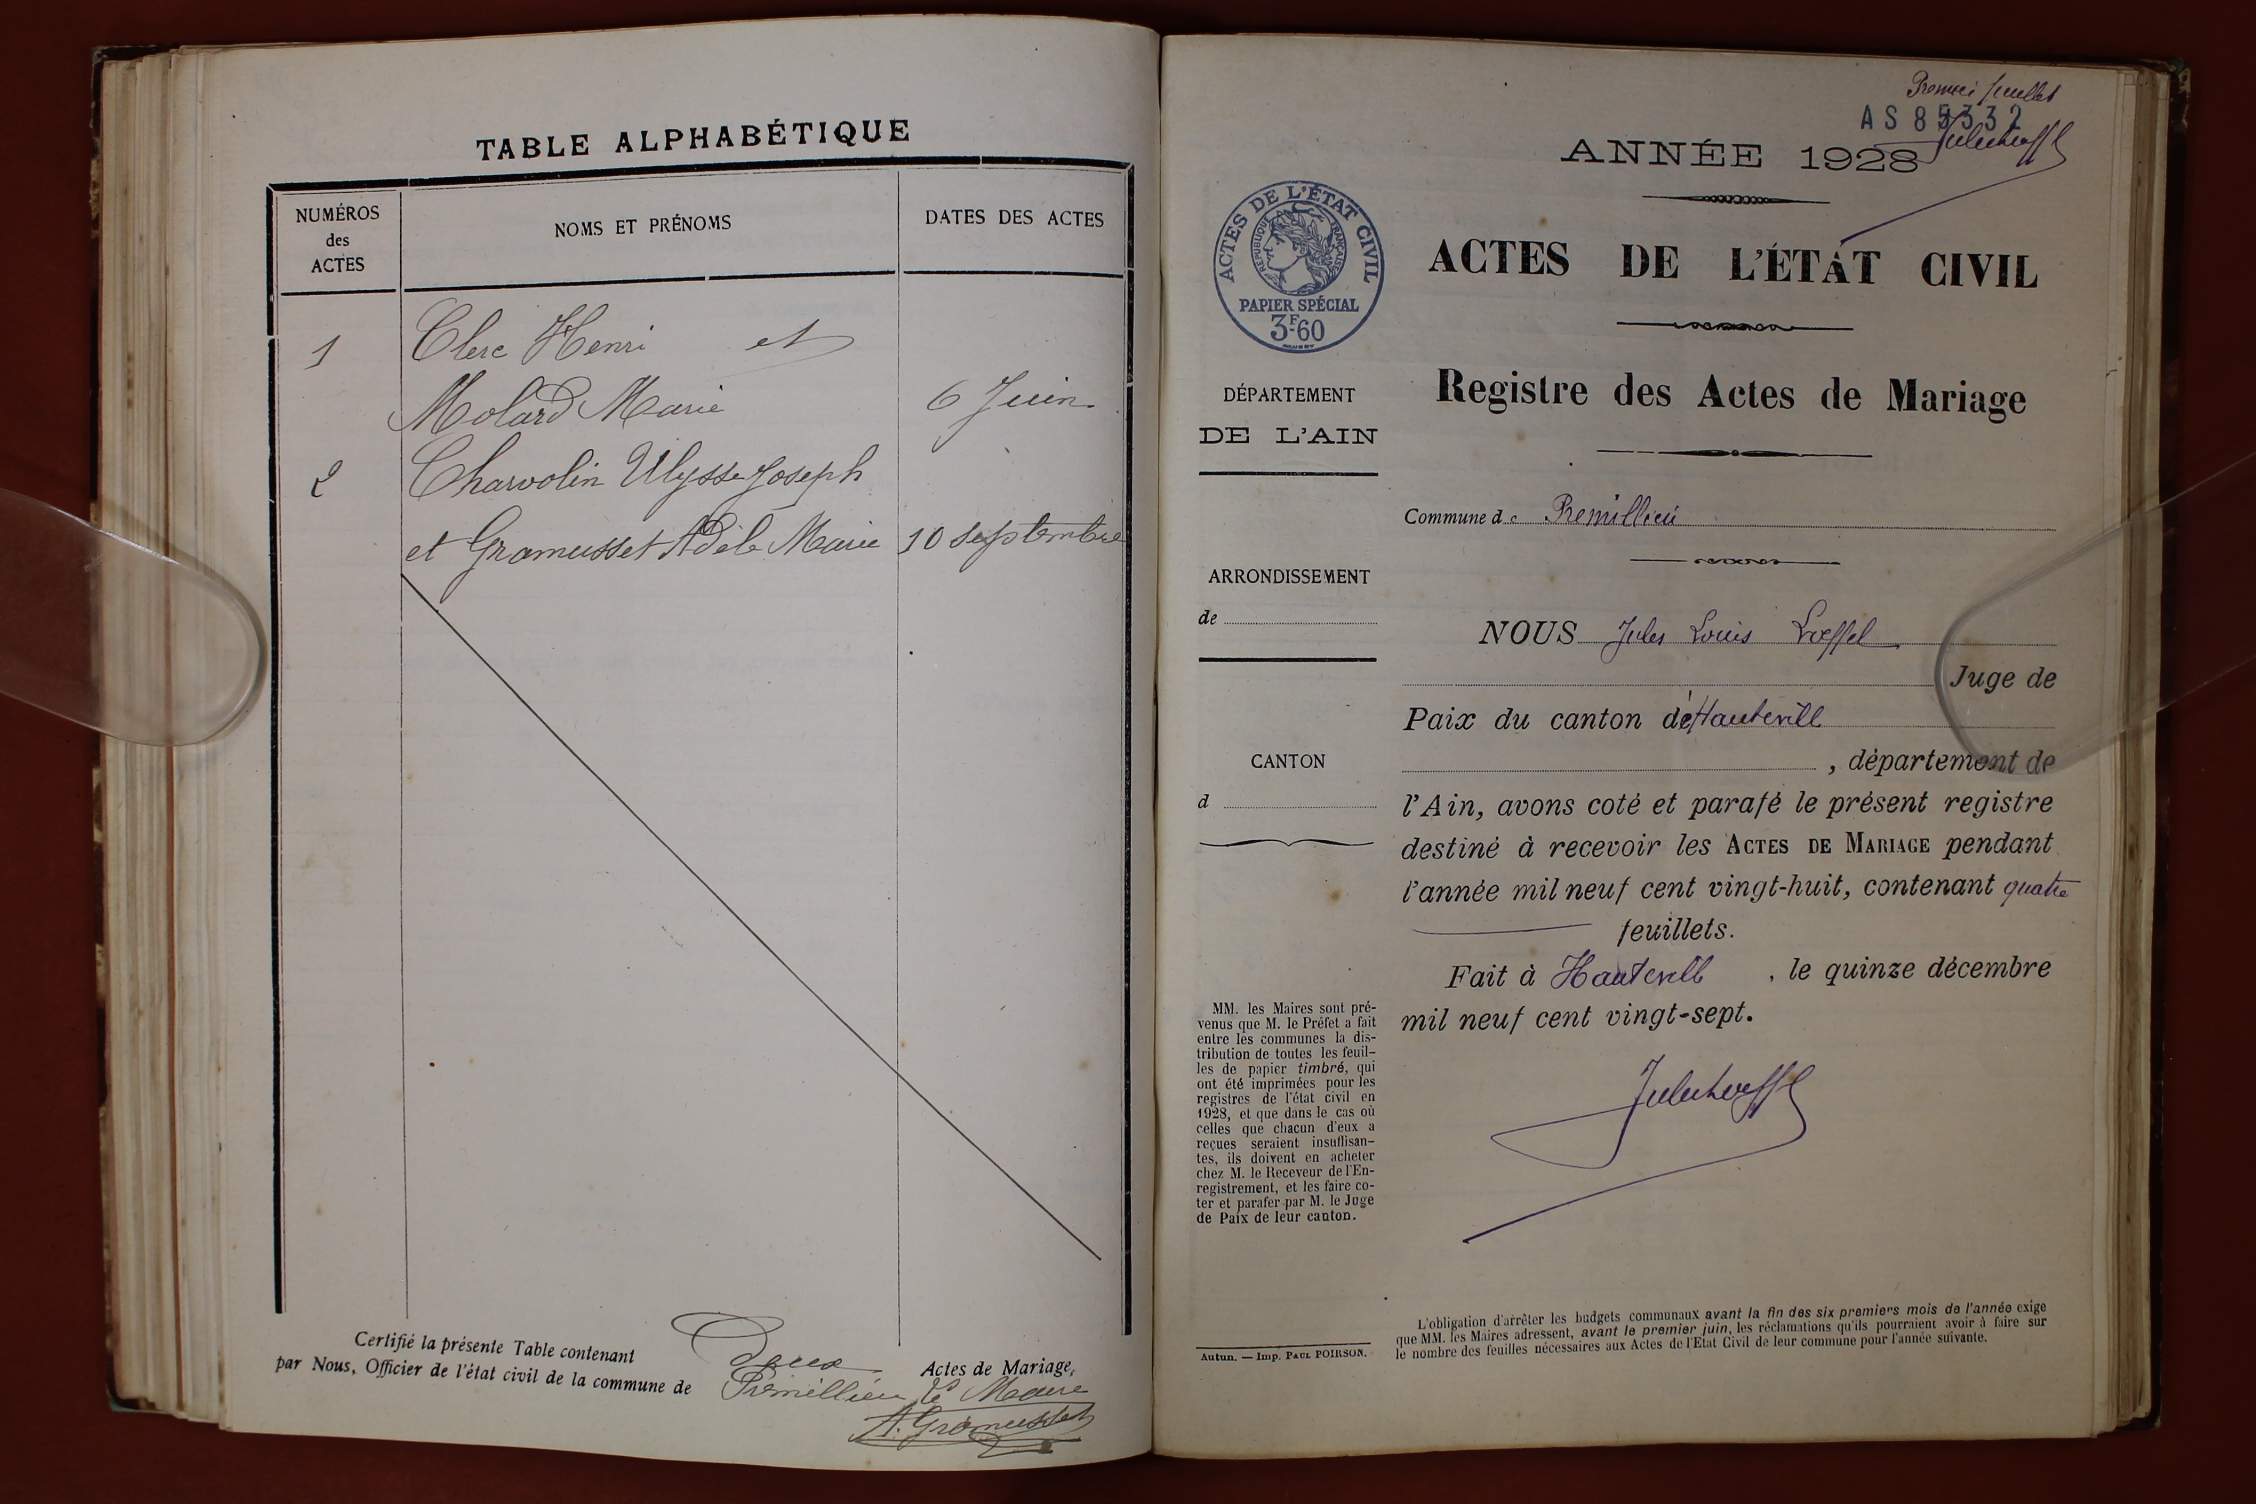 TABLE ALPHABÉTIQUE
NUMÉROS
des
ACTES
NOMS ET PRÉNOMS
DATES DES ACTES
1 Clerc Henri et
Molard Marie 6 Juin
2 Charvolin Ulysse Joseph
et Gramusset Adèle Marie 10 septembre
Certifié la présente Table contenant Deux Actes de Mariage,
par Nous, Officier de l'état civil de la commune de Prémillieu le Maire
A. Gramusset
Premier feuillet
AS 85332
ANNÉE 1928
ACTES DE L'ÉTAT CIVIL
RÉPUBLIQUE FRANÇAISE
PAPIER SPÉCIAL
3F60
ACTES DE L'ÉTAT CIVIL
Registre des Actes de Mariage
DÉPARTEMENT
DE L'AIN
ARRONDISSEMENT
de
CANTON
d
MM. les Maires sont pré-
venus que M. le Préfet a fait
entre les communes la dis-
tribution de toutes les feuil-
les de papier timbré, qui
ont été imprimées pour les
registres de l'état civil en
1928, et que dans le cas où
celles que chacun d'eux a
reçues seraient insuffisan-
tes, ils doivent en acheter
chez M. le Receveur de l'En-
registrement, et les faire co-
ter et parafer par M. le Juge
de Paix de leur canton.
Autun. — Imp. PAUL POIRSON.
Commune de Premillieu
NOUS Jules Louis Loeffel
Juge de
Paix du canton d'Hauteville
, département de
l'Ain, avons coté et parafé le présent registre
destiné à recevoir les ACTES DE MARIAGE pendant
l'année mil neuf cent vingt-huit, contenant quatre
feuillets.
Fait à Hauteville, le quinze décembre
mil neuf cent vingt-sept.
L'obligation d'arrêter les budgets communaux avant la fin des six premiers mois de l'année exige
que MM. les Maires adressent, avant le premier juin, les réclamations qu'ils pourraient avoir à faire sur
le nombre des feuilles nécessaires aux Actes de l'Etat Civil de leur commune pour l'année suivante.